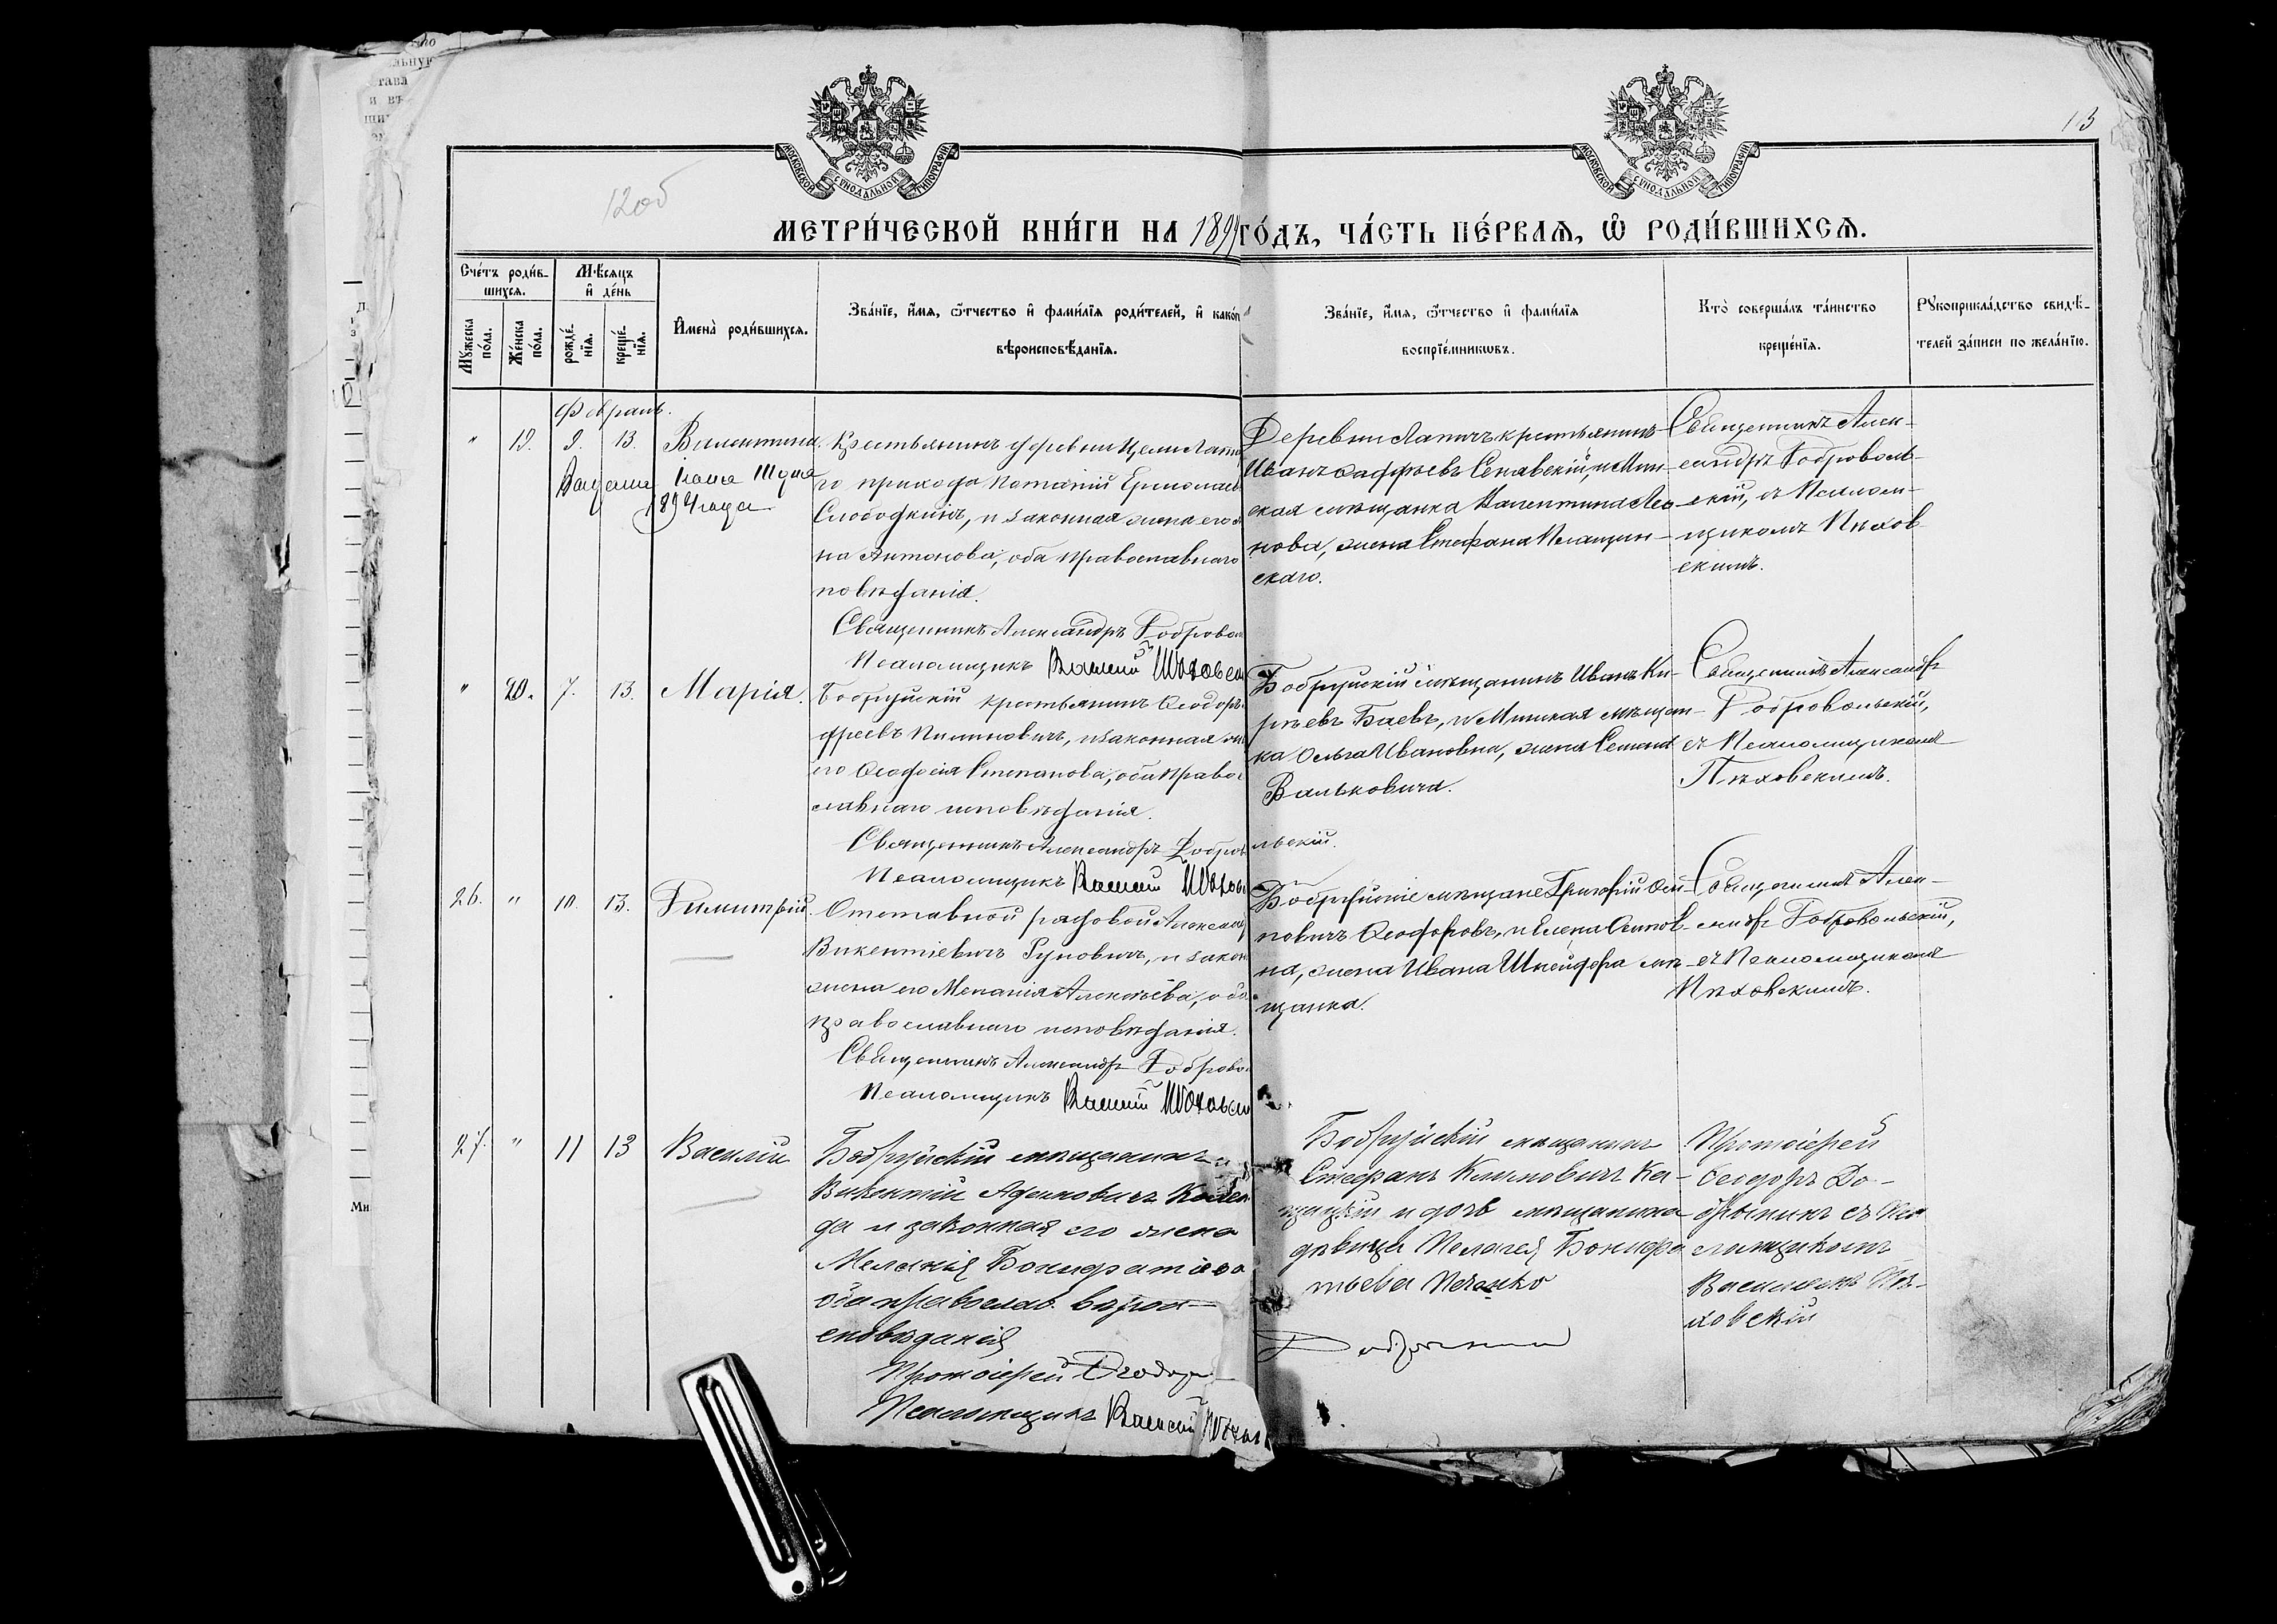 13
12об
МОСКОВСКОЙ СУНОДАЛЬНОЙ ТИПОГРАФІИ
МОСКОВСКОЙ СУНОДАЛЬНОЙ ТИПОГРАФІИ
МЕТРИ́ЧЕСКОЙ КНИ́ГИ НА 1894 ГО́ДЪ, ЧА́СТЬ ПЕ́РВАЯ, Ѿ РОДИ́ВШИХСЯ.
Сче́тъ роди́в-
шихся.
Мꙋжеска по́ла.
Же́нска по́ла.
Мѣ́сяцъ
и҆ де́нь
рожде́-
нїя.
креще́-
нїя.
И҆мена̀ роди́вшихся.
Зва́нїе, и҆́мя, ѻ҆́тчество и҆ фами́лїя роди́телей, и҆ како́г
вѣроисповѣ́данїя.
Зва́нїе, и҆́мя, ѻ҆́тчество и҆ фами́лїя
воспрїе́мникѡвъ.
Кто̀ соверша́лъ та́инство
креще́нїя.
Рꙋкоприкла́дство свидѣ́-
телей за́писи по жела́нїю.
Февраль.
" 19. 9. 13. Валентина.
1894 года
Крестьянинъ деревни
го прихода Ермолаев
Слободкинъ, и законная жена его
на Антонова, оба православнаго
повѣданія.
Священникъ Александръ Добровол
Псаломщикъ Василій Пѣховск
Деревни крестьянинъ
Иванъ и Мин-
ская мѣщанка Валентина Лео-
нова, жена Стефана
скаго.
Священникъ Алек-
сандръ Доброволь-
скій, съ Псалом-
щикомъ Пѣхов-
скимъ.
" 20. 7. 13. Марія.
Бобруйскій крестьянинъ Ѳеодоръ
и законная же
его Ѳеодосія Степанова, оба право-
славнаго исповѣданія.
Священникъ Александръ Добров
льскій.
Псаломщикъ Василій Пѣховс
Бобруйскій мѣщанинъ Иванъ Ки-
рѣевъ Баевъ, и Минская мѣщан-
ка Ольга Ивановна, жена
Вальковича.
Священникъ Александръ
Добровольскій,
съ Псаломщикомъ
Пѣховскимъ.
26. " 10. 13. Димитрій.
Отставной рядовой Александ
Викентіевичъ и закон
жена его Меланія Алексѣева, оба
православнаго исповѣданія.
Священникъ Александръ Доброво
Псаломщикъ Василій Пѣховск
Бобруйскіе мѣщане Григорій Оси-
повичъ Ѳеодоровъ, и Елена Осипов-
на, жена Ивана Шнейдера мѣ-
щанка.
Священникъ Алек-
сандръ Добровольскій,
съ Псаломщикомъ
Пѣховскимъ.
27. " 11 13 Василій
Бобруйскій мѣщанинъ
Викентій Адамовичъ Колен
да и законная его жена
Меланія Бонифатіева
оба православ. вѣрои-
сповѣданія
Протоіерей Ѳеодоръ
Псаломщикъ Василій Пѣхов
Бобруйскій мѣщанинъ
Стефанъ Климовичъ Ка-
и дочь мѣщанина
дѣвица Пелагея Бонифа
тьева
Протоіерей
Ѳеодоръ До-
брынинъ съ Пса
ломщикомъ
Василіемъ Пѣ-
ховскій